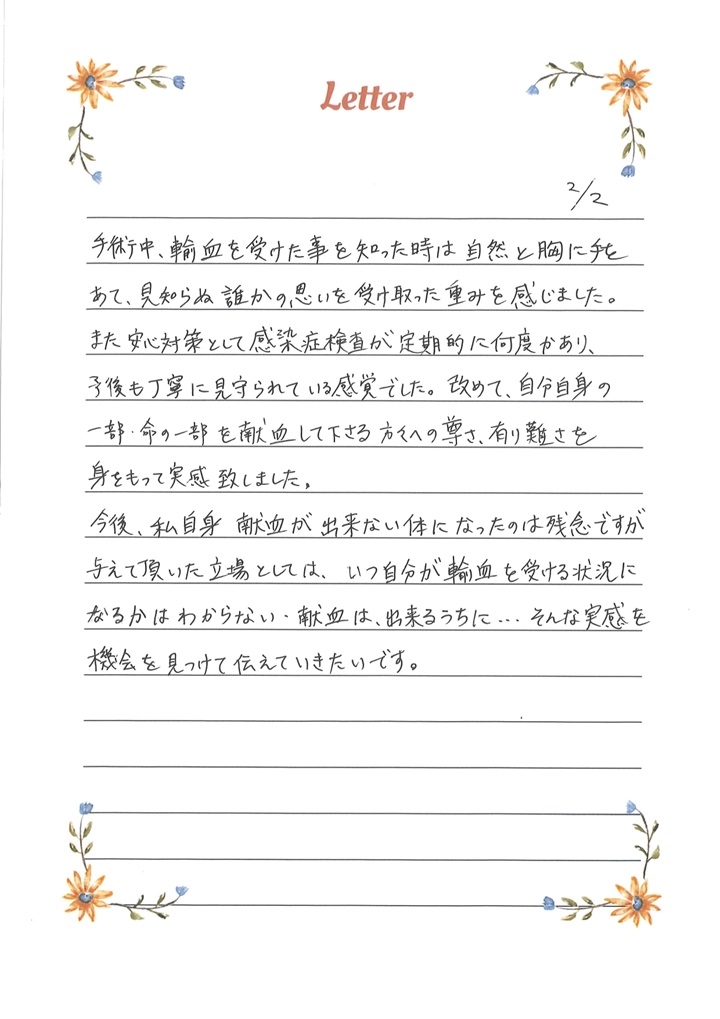 Letter
2/2
手術中、輸血を受けた事を知った時は自然と胸に手を
あて、見知らぬ誰かの思いを受け取った重みを感じました。
また安心対策として感染症検査が定期的に何度かあり、
予後も丁寧に見守られている感覚でした。改めて、自分自身の
一部・命の一部を献血して下さる方々への尊さ、有り難さを
身をもって実感致しました。
今後、私自身献血が出来ない体になったのは残念ですが
与えて頂いた立場としては、いつ自分が輸血を受ける状況に
なるかはわからない・献血は、出来るうちに…そんな実感を
機会を見つけて伝えていきたいです。